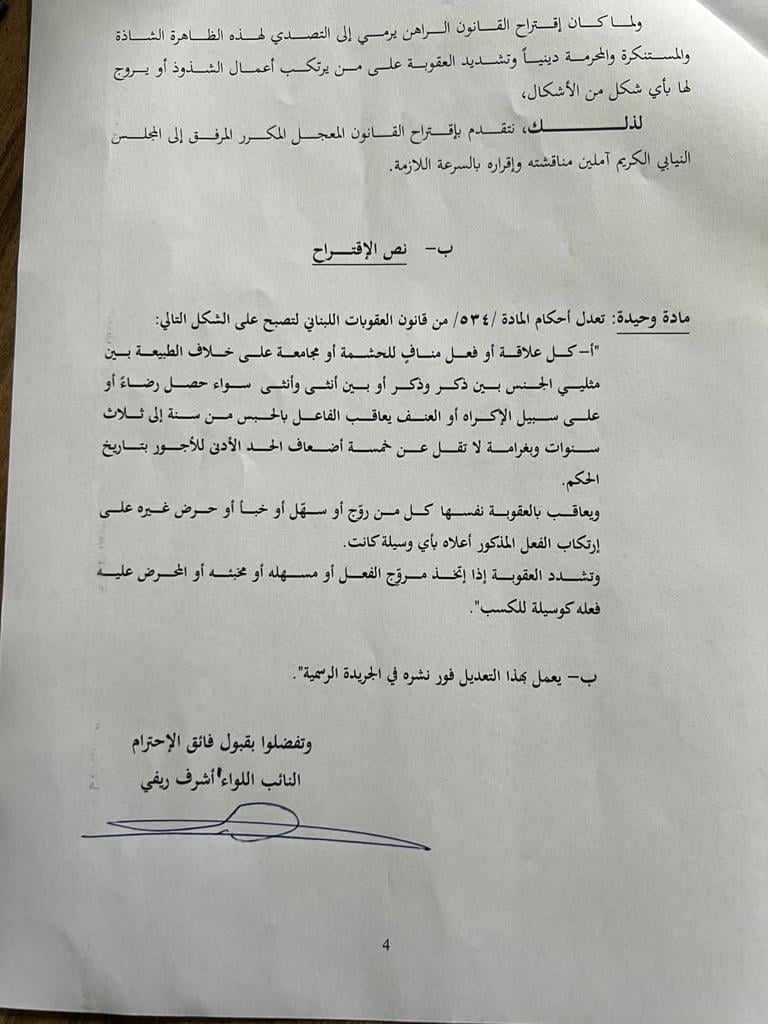 ولما كان إقتراح القانون الراهن يرمي إلى التصدي لهذه الظاهرة الشاذة
والمستنكرة والمحرمة دينياً وتشديد العقوبة على من يرتكب أعمال الشذوذ أو يروج
لها بأي شكل من الأشكال،
لذلك، نتقدم بإقتراح القانون المعجل المكرر المرفق إلى المجلس
النيابي الكريم آملين مناقشته وإقراره بالسرعة اللازمة.
ب- نص الإقتراح
مادة وحيدة: تعدل أحكام المادة /٥٣٤/ من قانون العقوبات اللبناني لتصبح على الشكل التالي:
"أ- كل علاقة أو فعل منافٍ للحشمة أو مجامعة على خلاف الطبيعة بين
مثليي الجنس بين ذكر وذكر أو بين أنثى وأنثى سواء حصل رضاءً أو
على سبيل الإكراه أو العنف يعاقب الفاعل بالحبس من سنة إلى ثلاث
سنوات وبغرامة لا تقل عن خمسة أضعاف الحد الأدنى للأجور بتاريخ
الحكم.
ويعاقب بالعقوبة نفسها كل من روّج أو سهّل أو خبأ أو حرض غيره على
إرتكاب الفعل المذكور أعلاه بأي وسيلة كانت.
وتشدد العقوبة إذا إتخذ مروّج الفعل أو مسهله أو مخبئه أو المحرض عليه
فعله كوسيلة للكسب".
ب- يعمل بهذا التعديل فور نشره في الجريدة الرسمية".
وتفضلوا بقبول فائق الإحترام
النائب اللواء أشرف ريفي
4